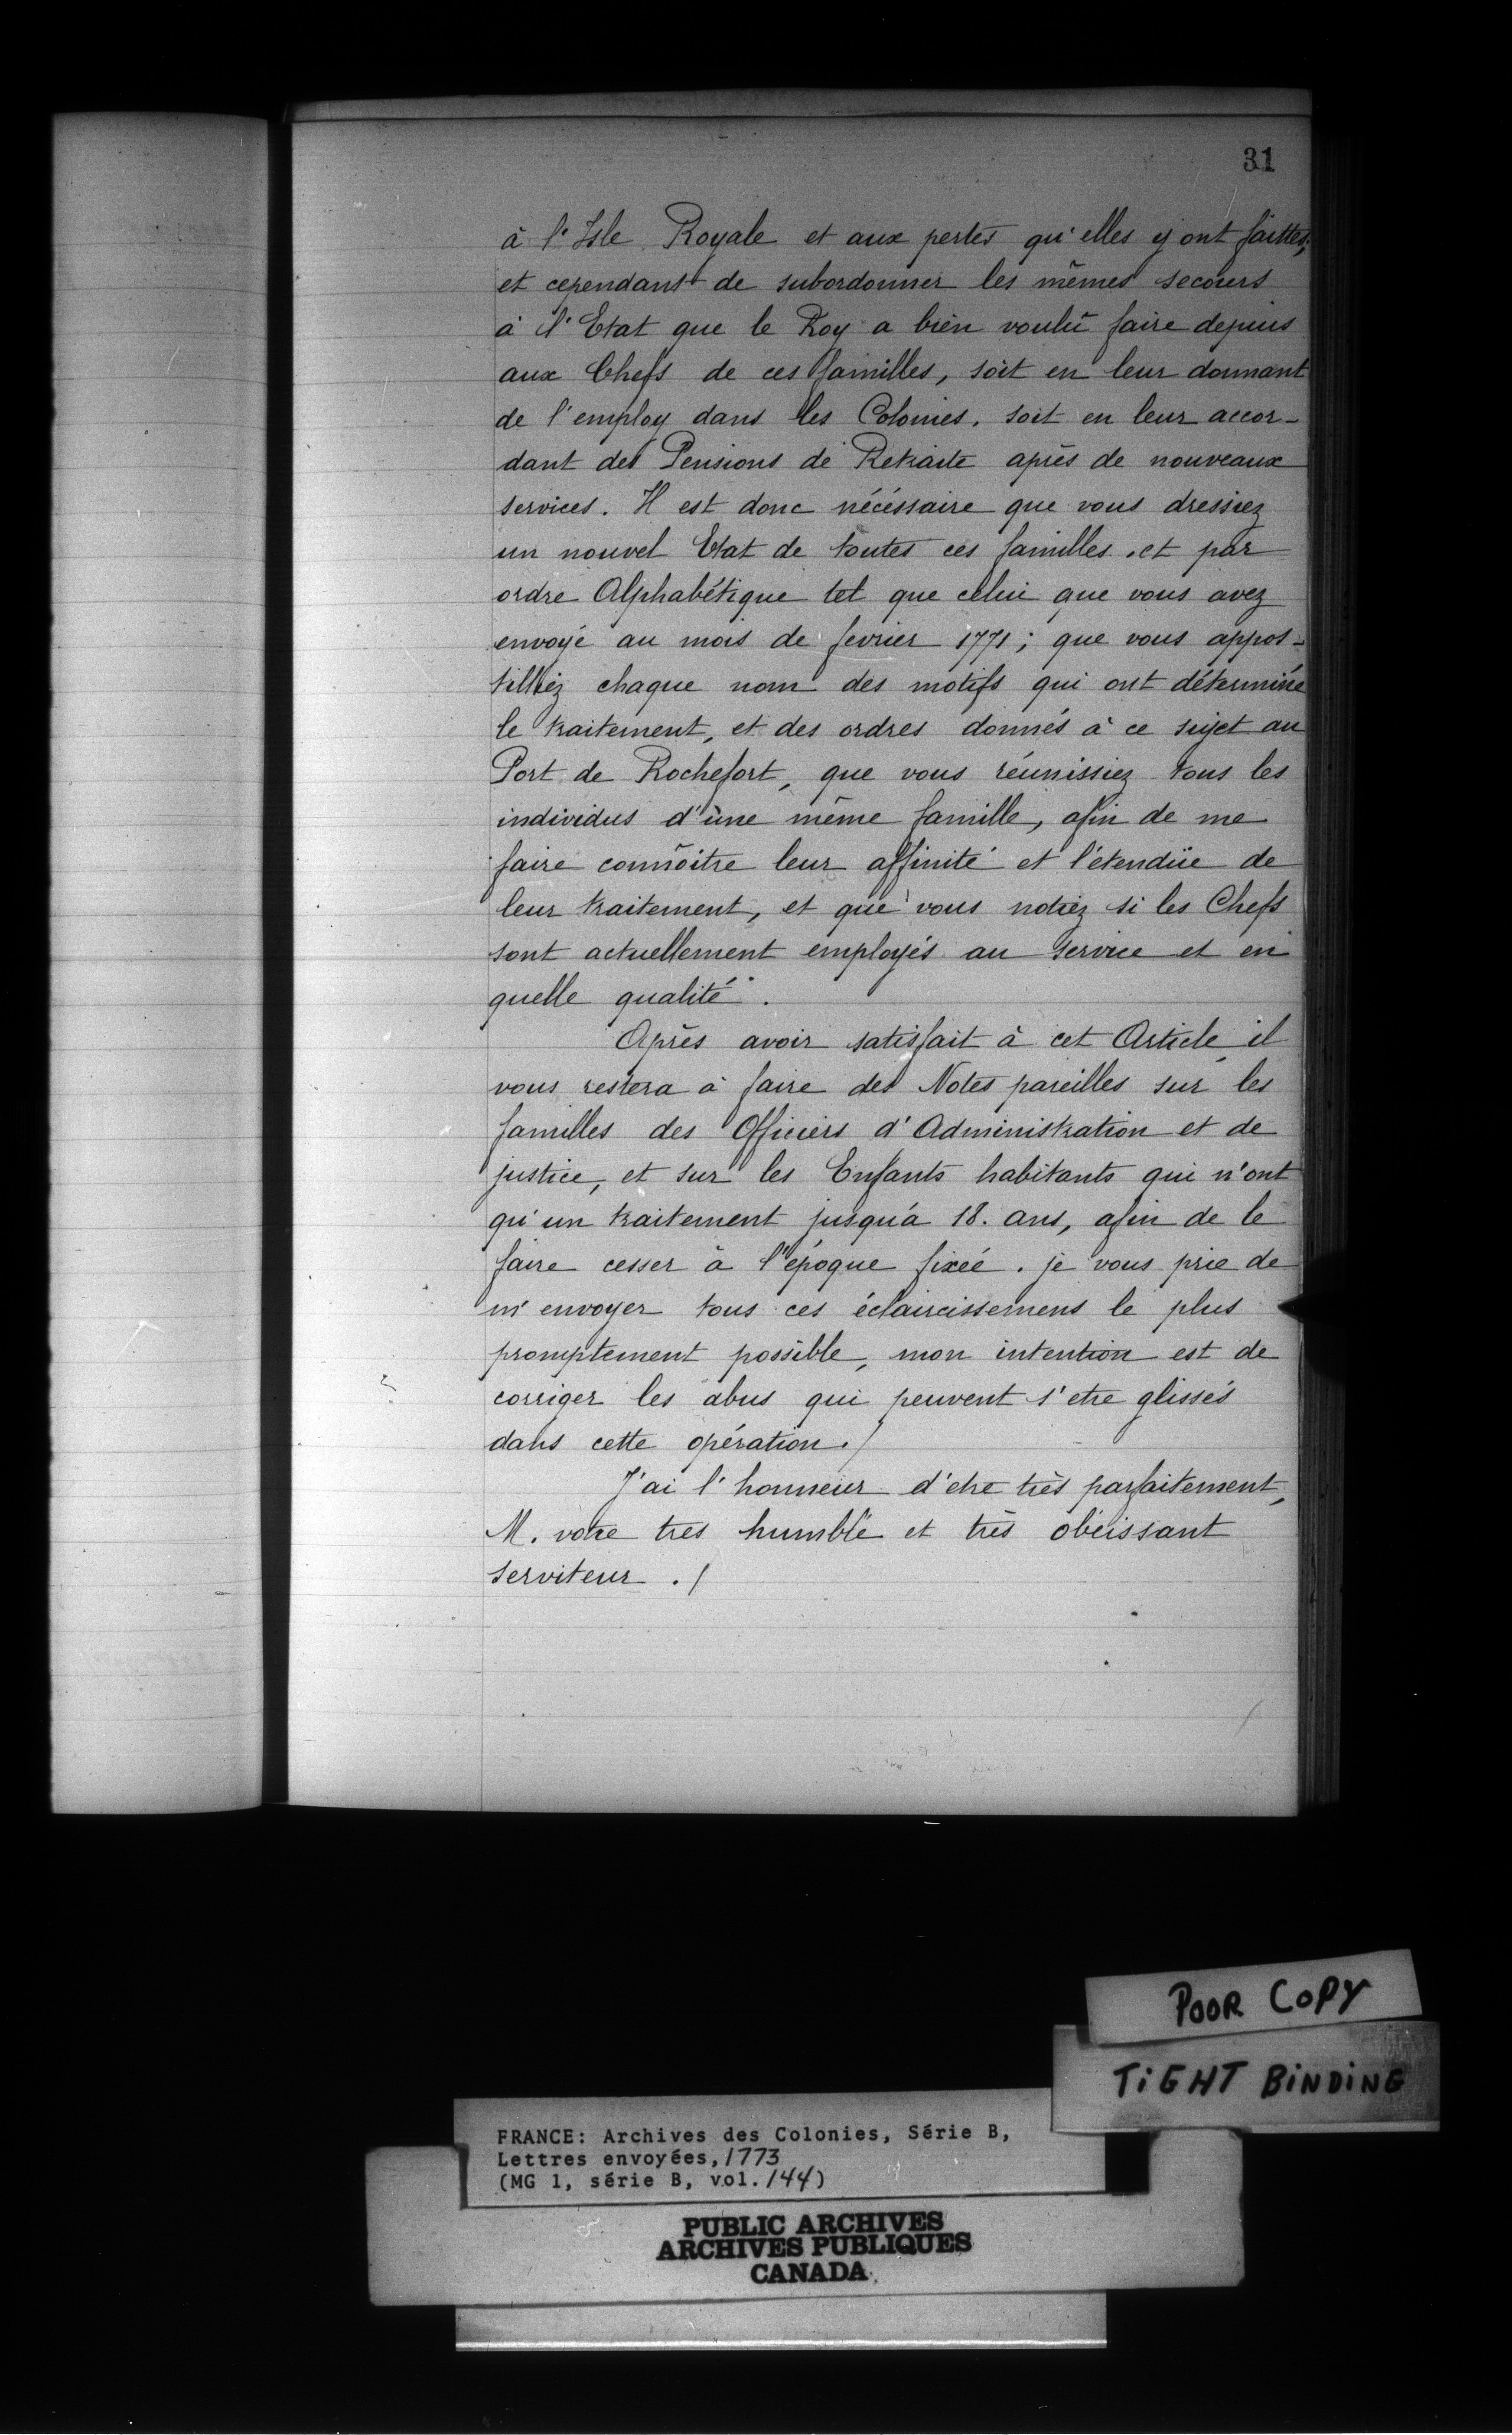 31
à l'Isle Royale et aux pertes qu'elles y ont faittes;
et cependant de subordonner les mêmes secours
à l'Etat que le Roy a bien voulu faire depuis
aux Chefs de ces familles, soit en leur donnant
de l'employ dans les Colonies, soit en leur accor-
dant des Pensions de Retraite après de nouveaux
services. Il est donc nécéssaire que vous dressiez
un nouvel Etat de toutes ces familles, et par
ordre Alphabétique tel que celui que vous avez
envoyé au mois de fevrier 1771; que vous appos-
tilliez chaque nom des motifs qui ont déterminé
le traitement, et des ordres donnés à ce sujet au
Port de Rochefort, que vous réunissiez tous les
individus d'une même famille, afin de me
faire connôitre leur affinité et l'étendüe de
leur traitement, et que vous notiez si les Chefs
sont actuellement employés au service et en
quelle qualité.
Après avoir satisfait à cet Article, il
vous restera à faire des Notes pareilles sur les
familles des Officiers d'Administration et de
justice, et sur les Enfants habitants qui n'ont
qu'un traitement jusqu'à 18. ans, afin de le
faire cesser à l'époque fixée. je vous prie de
m'envoyer tous ces éclaircissemens le plus
promptement possible, mon intention est de
corriger les abus qui peuvent s'etre glissés
dans cette opération./
J'ai l'honneur d'etre très parfaitement,
M. votre tres humble et très obéissant
serviteur ./
POOR COPY
TIGHT BINDING
FRANCE: Archives des Colonies, Série B,
Lettres envoyées, 1773
(MG 1, série B, vol. 144)
PUBLIC ARCHIVES
ARCHIVES PUBLIQUES
CANADA